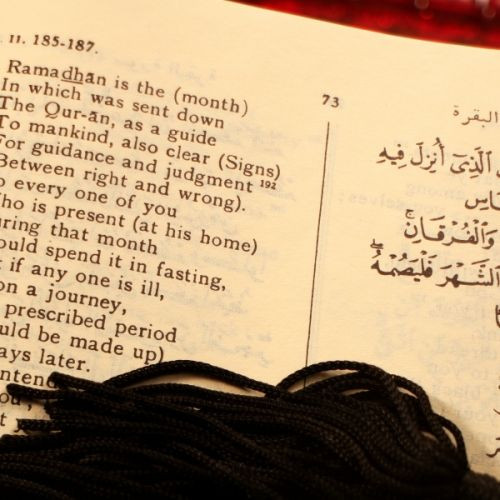 II. 185-187.
73
Ramadhān is the (month)
In which was sent down
The Qur-ān, as a guide
To mankind, also clear (Signs)
For guidance and judgment 192
Between right and wrong).
every one of you
is present (at his home)
that month
spend it in fasting,
if any one is ill,
on a journey,
prescribed period
be made up)
later.
البقرة
ٱلَّذِىٓ أُنزِلَ فِيهِ
وَٱلْفُرْقَانِ ۚ
ٱلشَّهْرَ فَلْيَصُمْهُ ۖ